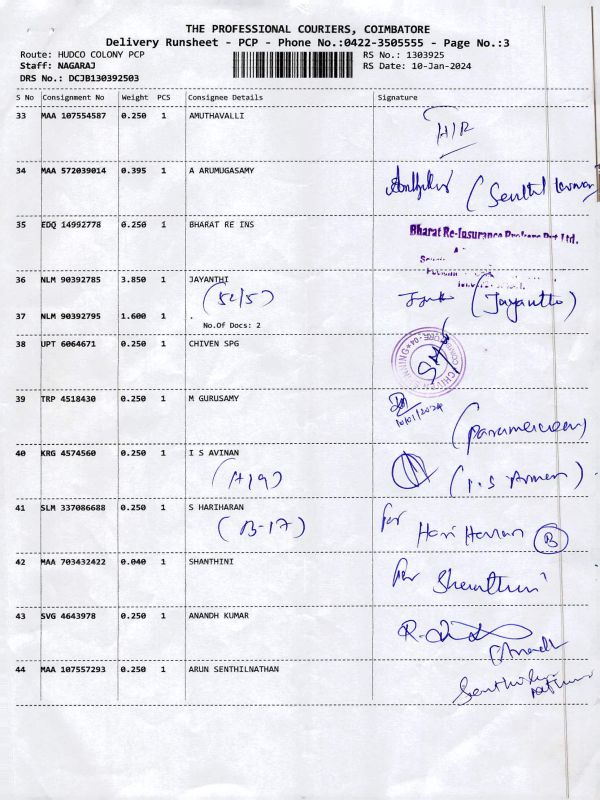 THE PROFESSIONAL COURIERS, COIMBATORE
Delivery Runsheet - PCP - Phone No.:0422-3505555 - Page No.:3
Route: HUDCO COLONY PCP RS No.: 1303925
Staff: NAGARAJ RS Date: 10-Jan-2024
DRS No.: DCJB130392503
S No Consignment No Weight PCS Consignee Details Signature
33 MAA 107554587 0.250 1 AMUTHAVALLI
34 MAA 572039014 0.395 1 A ARUMUGASAMY
35 EDQ 14992778 0.250 1 BHARAT RE INS
Bharat Re-Insurance Brokers Pvt Ltd.
36 NLM 90392785 3.850 1 JAYANTHI
37 NLM 90392795 1.600 1
No.Of Docs: 2
38 UPT 6064671 0.250 1 CHIVEN SPG
39 TRP 4518430 0.250 1 M GURUSAMY
10/01/2024
40 KRG 4574560 0.250 1 I S AVINAN
(A19)
41 SLM 337086688 0.250 1 S HARIHARAN
(B-17)
for Hari Haran B
42 MAA 703432422 0.040 1 SHANTHINI
for Shanthini
43 SVG 4643978 0.250 1 ANANDH KUMAR
44 MAA 107557293 0.250 1 ARUN SENTHILNATHAN